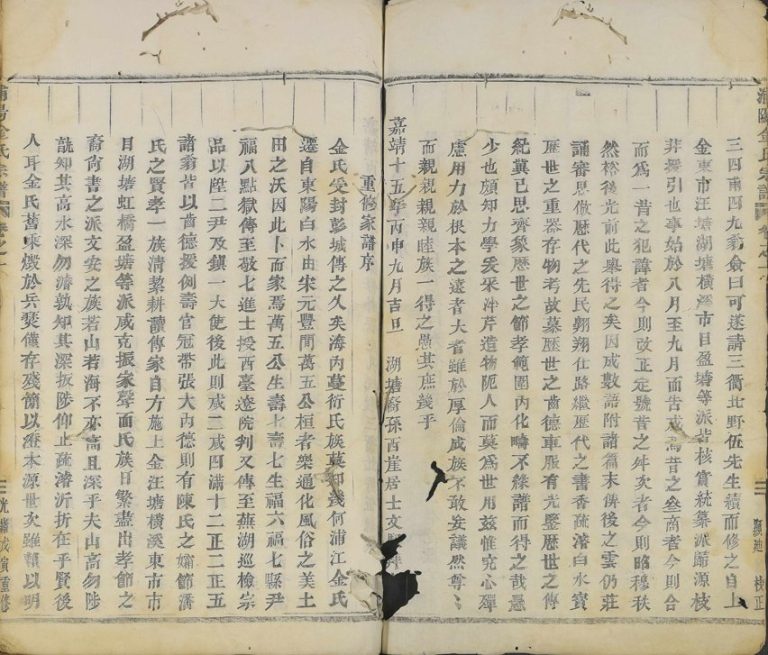 浦陽金氏宗譜
三四甫四九翁僉曰可遂請三衢北野伍先生續而修之自上
金東市汪塘湖塘橫溪市日盈塘等派皆核實統纂派歸源枝
非援引也事始於八月至九月而告成焉昔之叄商者今則合
而爲一昔之犯諱者今則改正定號昔之舛次者今則昭穆秩
然裕後光前此舉得之矣因成數語附諸篇末俾後之雲仍莊
誦審思倣歷代之先民翱翔仕路繼歷代之書香疏濬白水實
歷世之重器存物考故墓歷世之齒德車服有光鑒歷世之傳
紀冀已思齊象歷世之節孝範圍內化疇不緣譜而得之哉愚
少也頗知力學爰采泮芹造物阨人而莫爲世用茲惟究心殫
慮用力於根本之遠者大者雖於厚倫成族不敢妄議然尊尊
而親親親睦族一得之愚其庶幾乎
嘉靖十五年丙申九月吉旦 湖塘裔孫西崖居士文
重修家譜序
金氏受封彭城傳之久矣海內蔓衍氏族莫知幾何浦江金氏
遷自東陽白水由宋元豐間萬五公桓者樂通化風俗之美土
田之沃因此卜而家焉萬五公生壽七壽七生福六福七縣尹
福八點獄傳至敬七進士授西臺遼院判又傳至蕪湖巡檢宗
品以陞二尹及鎮一大使後此則成二成四滿十二正二正五
諸翁皆以齒德援例壽官冠帶張大內德則有陳氏之孀節潘
氏之賢孝一族清棻耕讀傳家自方施上金汪塘橫溪東市市
日湖塘虹橋盈塘等派咸克振家聲而氏族日繁藎出孝節之
裔尙書之派文安之族若山若海不亦高且深乎夫山高勿陟
孰知其高水深勿濬孰知其深扳陟仰止疏濬沂折在乎賢後
人耳金氏舊乘燬於兵燹僅存殘簡以濬本源世次雖賴以明
浦陽金氏宗譜
光緒戊寅重修